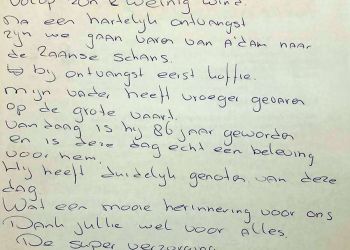 volop zon & weinig wind.
Na een hartelyk ontvangst
zyn we gaan varen van A'dam naar
de Zaanse Schans.
by ontvangst eerst koffie.
Mijn vader heeft vroeger gevaren
op de grote vaart.
Vandaag is hy 86 jaar geworden
en is deze dag echt een beleving
voor hem.
Hy heeft duidelyk genoten van deze
dag
Wat een mooie herinnering voor ons
Dank jullie wel voor alles
De super verzorging